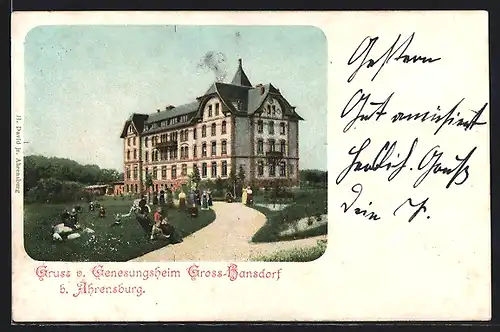 H. David jr. Ahrensburg
Gestern
Gut amüsiert
Herzlich. Gruß
Dein
Gruss v. Genesungsheim Gross-Hansdorf
b. Ahrensburg.